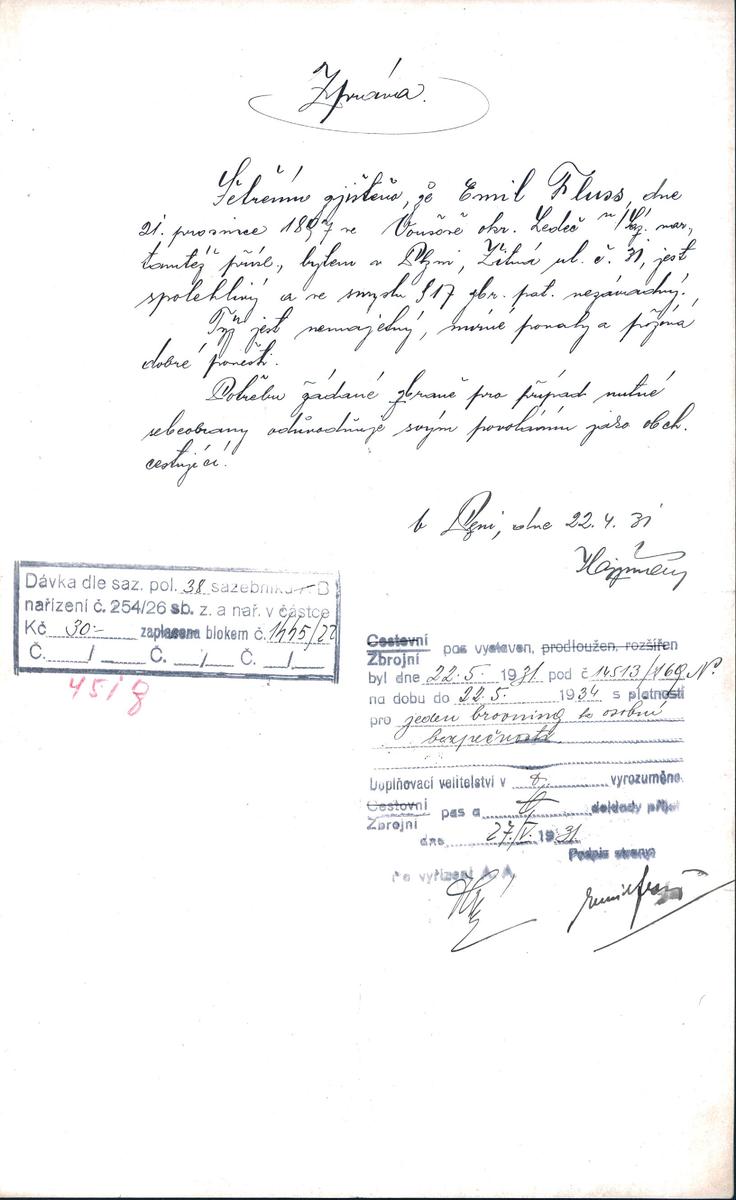 Zpráva.
Šetřením zjištěno, že Emil Fluss, dne
21. prosince 1897 ve okr. Ledeč n/Sáz. nar.,
tamtéž přísl., bytem v Plzni, Žitná ul. č. 31, jest
spolehlivý a ve smyslu §17 zbr. pat. nezávadný.
Týž jest nemajetný, mírné povahy a požívá
dobré pověsti.
Potřebu žádané zbraně pro případ nutné
sebeobrany odůvodňuje svým povoláním jako obch.
cestující.
V Plzni, dne 22.4.31
Dávka dle saz. pol. 38 sazebníku B
nařízení č. 254/26 sb. z. a nař. v částce
Kč 30.- zaplacena blokem č.
Č. / Č. / Č. /
45/8
Cestovní pas vystaven, prodloužen, rozšířen
Zbrojní
byl dne 22.5. 1931 pod č 14513/
na dobu do 22.5. 1934 s platností
pro jeden browning k osobní
bezpečnosti.
Doplňovací velitelství v vyrozuměno.
Cestovní pas a doklady přijal
Zbrojní
dne 27./V. 1931
Podpis strany:
Po vyřízení A. A.